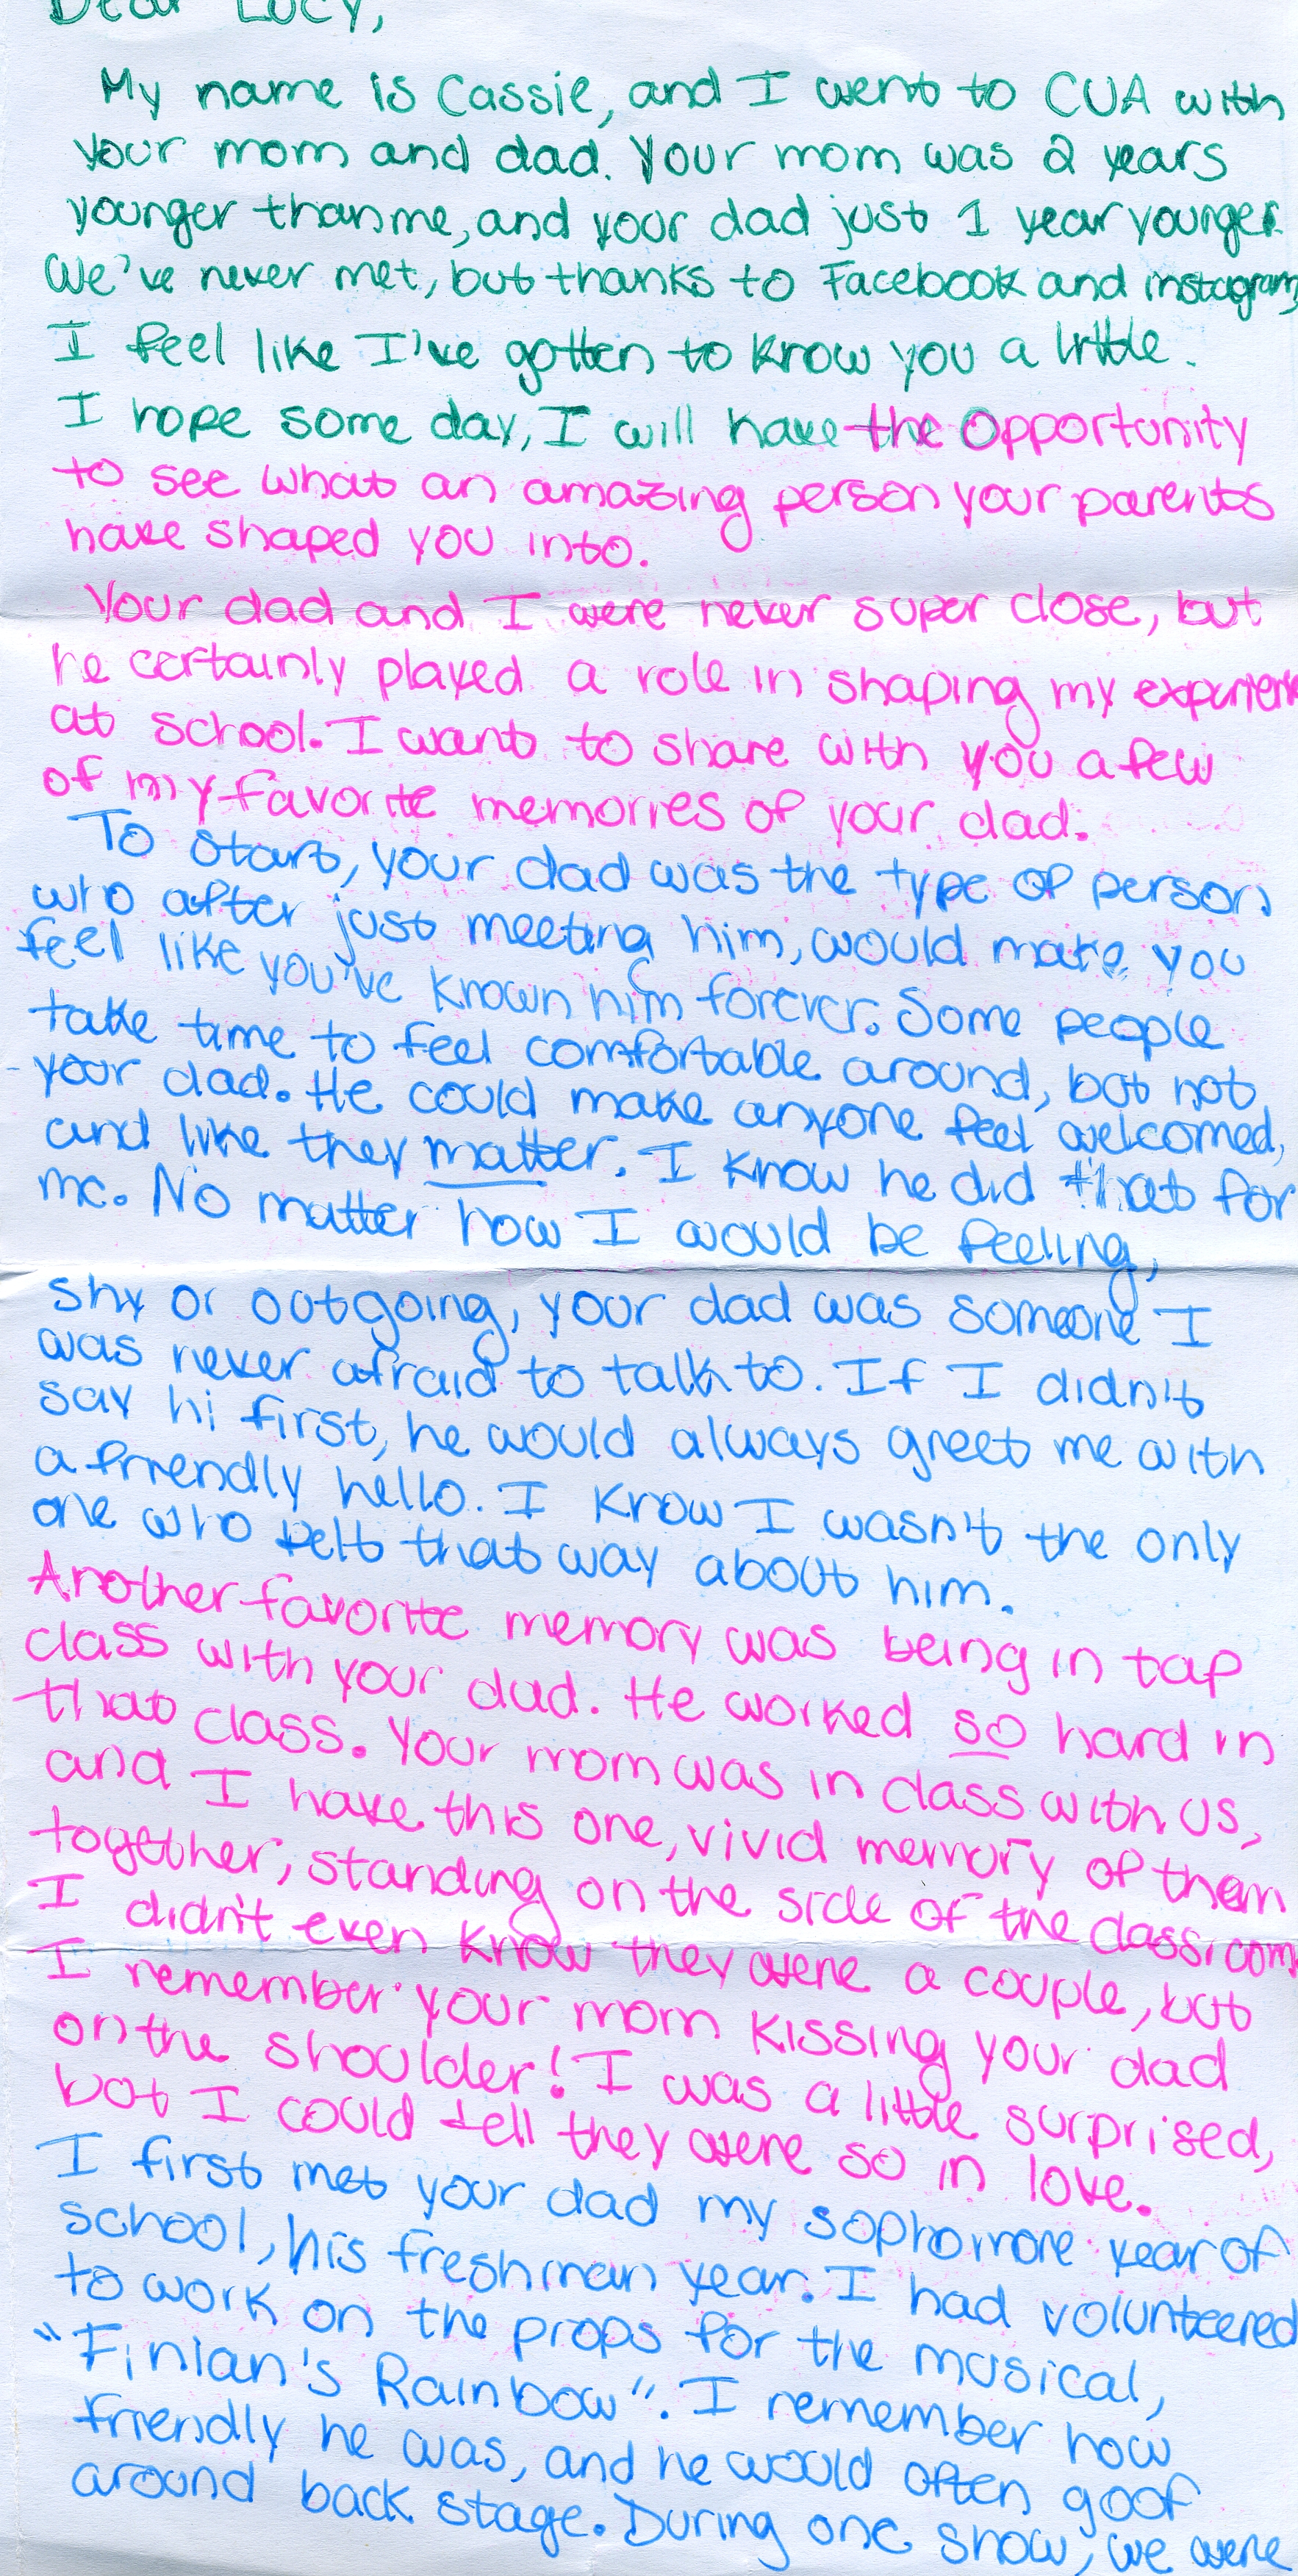 Dear Lucy,
My name is Cassie, and I went to CUA with
your mom and dad. Your mom was 2 years
younger than me, and your dad just 1 year younger.
We've never met, but thanks to Facebook and instagram,
I feel like I've gotten to know you a little.
I hope some day, I will have the opportunity
to see what an amazing person your parents
have shaped you into.
Your dad and I were never super close, but
he certainly played a role in shaping my
at school. I want to share with you a few
of my favorite memories of your dad.
To start, your dad was the type of person
who after just meeting him, would make you
feel like you've known him forever. Some people
take time to feel comfortable around, but not
your dad. He could make anyone feel welcomed,
and like they matter. I know he did that for
me. No matter how I would be feeling,
shy or outgoing, your dad was someone I
was never afraid to talk to. If I didn't
say hi first, he would always greet me with
a friendly hello. I know I wasn't the only
one who felt that way about him.
Another favorite memory was being in tap
class with your dad. He worked so hard in
that class. Your mom was in class with us,
and I have this one, vivid memory of them
together, standing on the side of the classroom
I didn't even know they were a couple, but
I remember your mom kissing your dad
on the shoulder! I was a little surprised,
but I could tell they were so in love.
I first met your dad my sophomore year of
school, his freshman year. I had volunteered
to work on the props for the musical,
"Finian's Rainbow". I remember how
friendly he was, and he would often goof
around back stage. During one show, we were